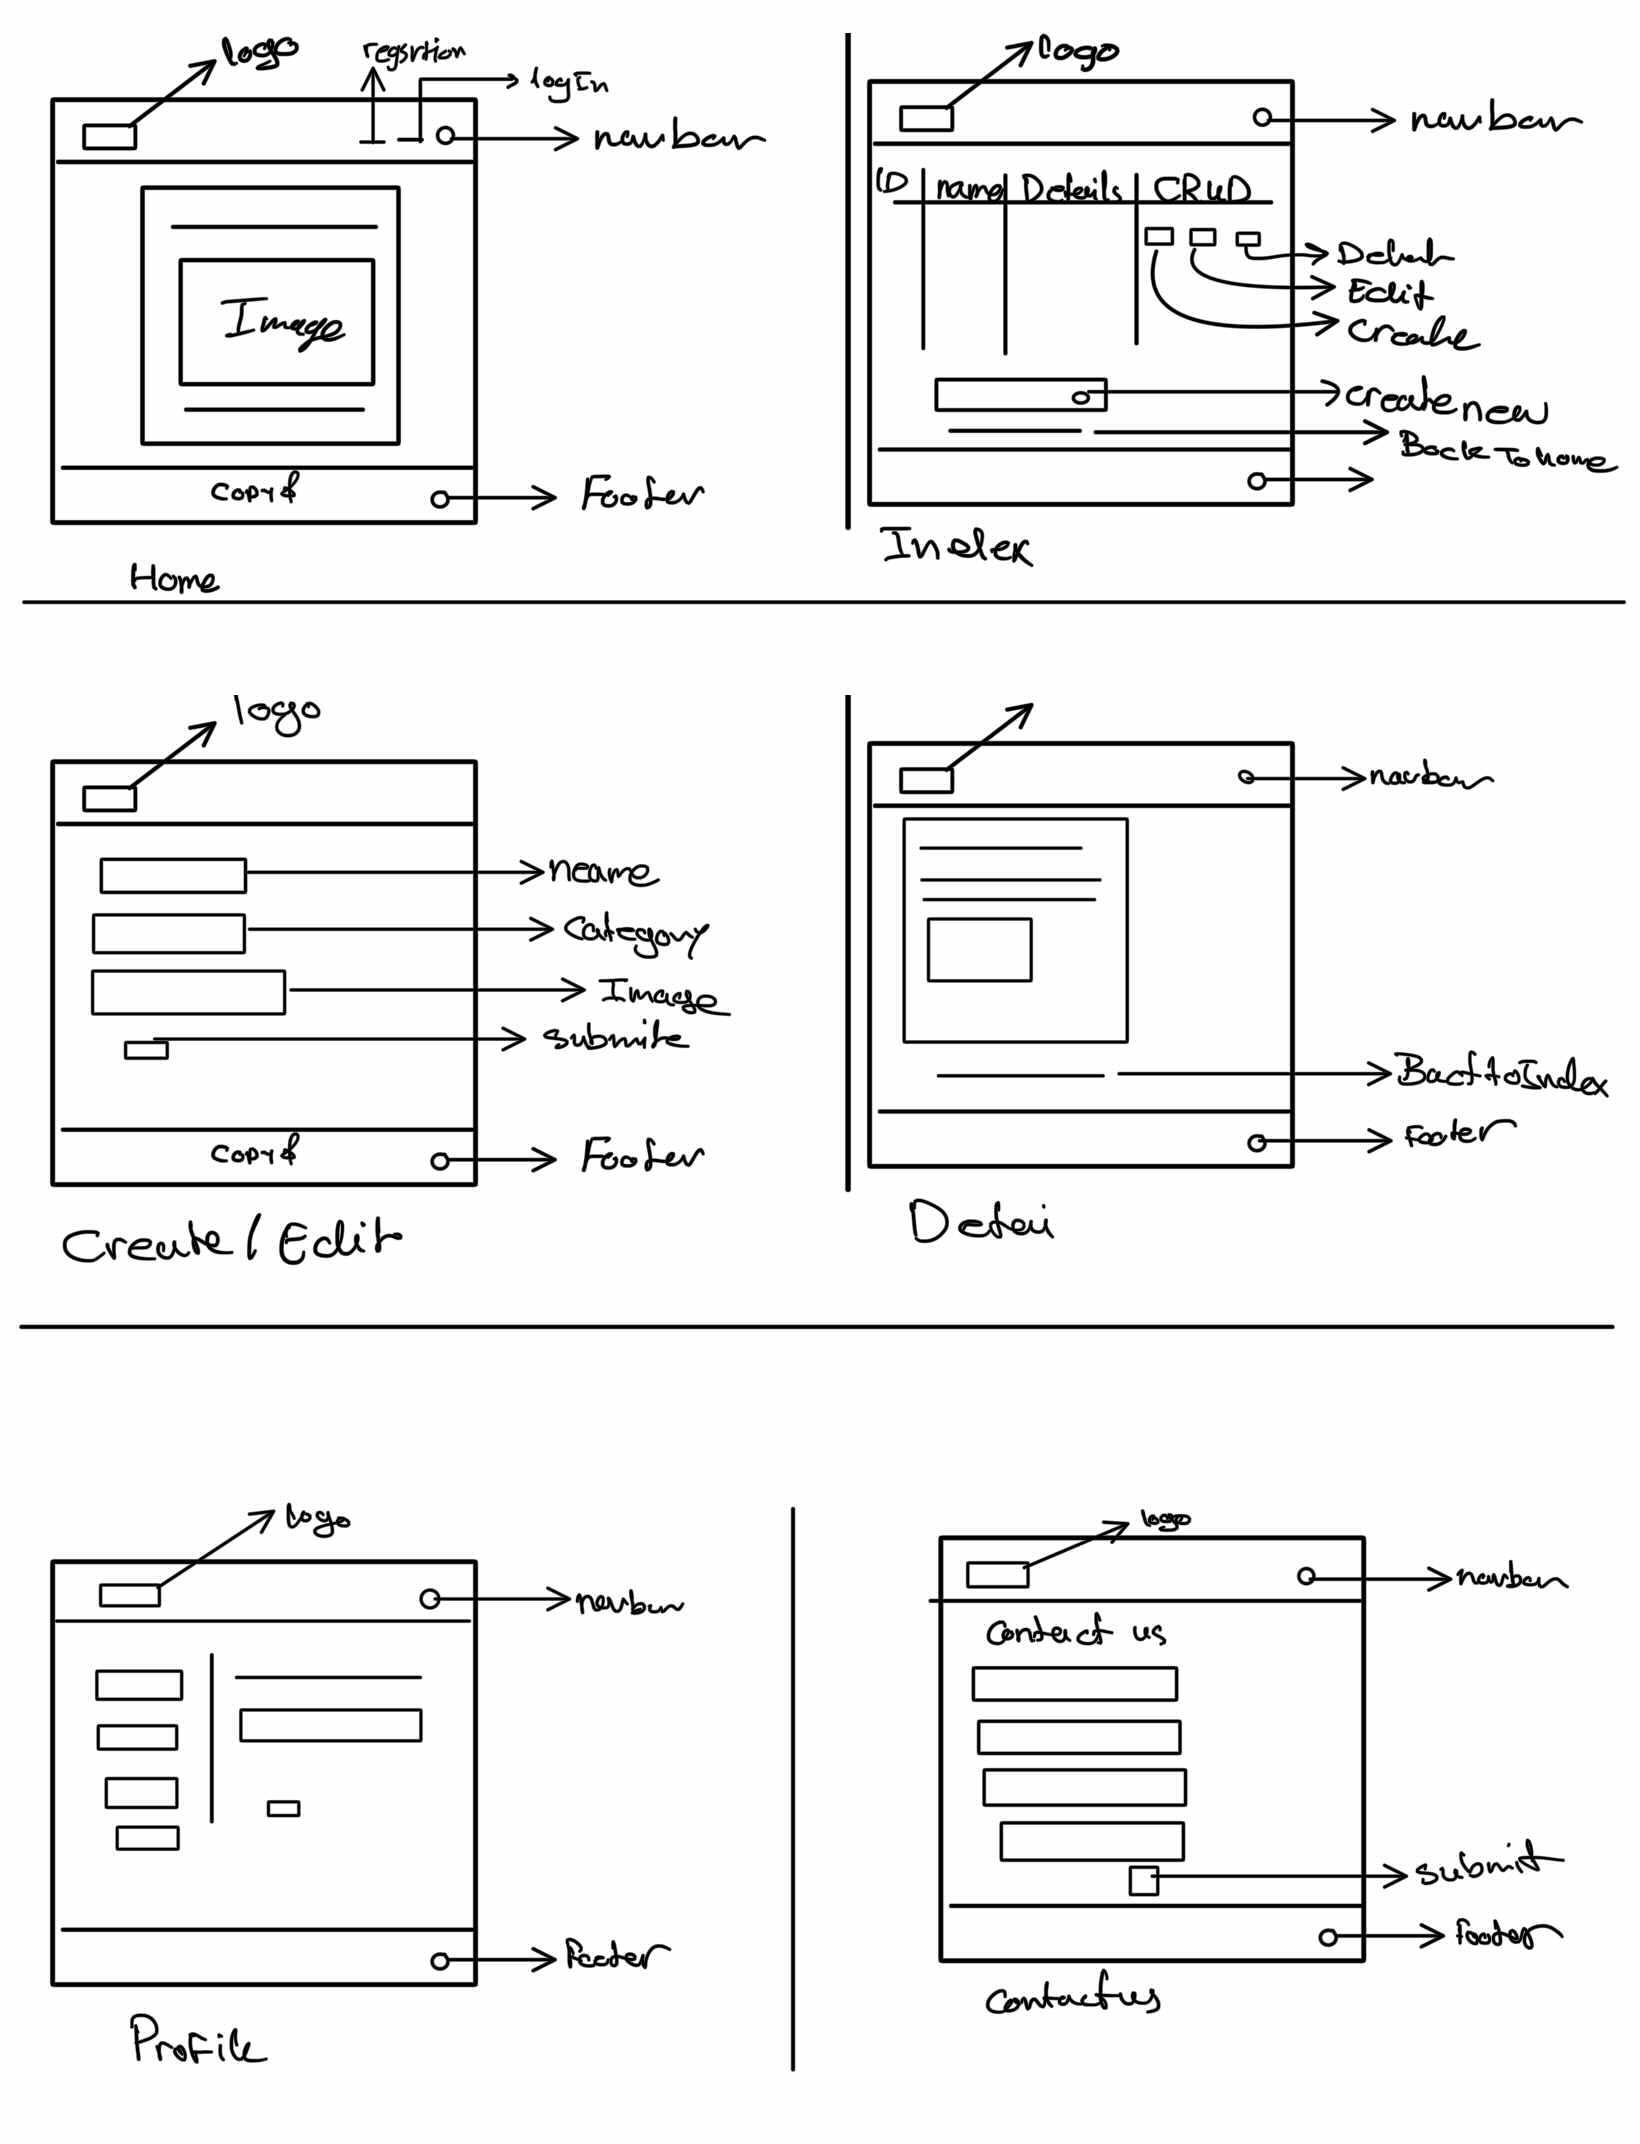 logo
regsrtion
logIn
navbar
Image
copyr
Footer
Home
logo
navbar
ID name Details CRUD
Edit
Create
create new
Back To home
Index
logo
name
Category
Image
submit
copyr
Footer
Create / Edit
navbar
Back to Index
footer
Detai
logo
navbar
Footer
Profile
logo
navbar
Contact us
submit
footer
contact us